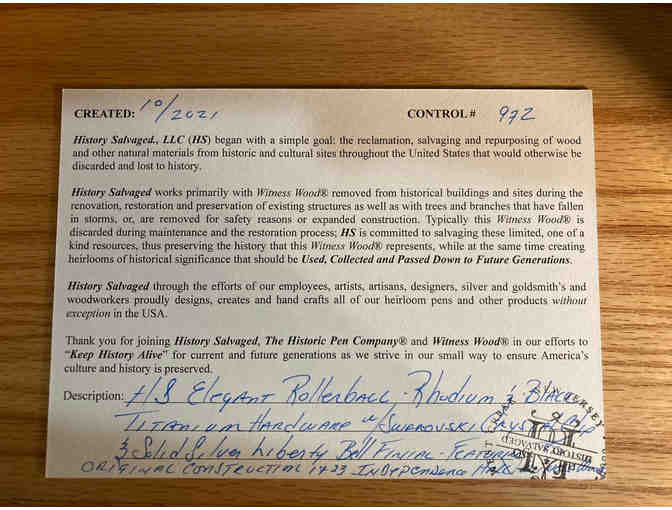 CREATED: 10/2021 CONTROL # 972
History Salvaged., LLC (HS) began with a simple goal: the reclamation, salvaging and repurposing of wood
and other natural materials from historic and cultural sites throughout the United States that would otherwise be
discarded and lost to history.
History Salvaged works primarily with Witness Wood® removed from historical buildings and sites during the
renovation, restoration and preservation of existing structures as well as with trees and branches that have fallen
in storms, or, are removed for safety reasons or expanded construction. Typically this Witness Wood® is
discarded during maintenance and the restoration process; HS is committed to salvaging these limited, one of a
kind resources, thus preserving the history that this Witness Wood® represents, while at the same time creating
heirlooms of historical significance that should be Used, Collected and Passed Down to Future Generations.
History Salvaged through the efforts of our employees, artists, artisans, designers, silver and goldsmith's and
woodworkers proudly designs, creates and hand crafts all of our heirloom pens and other products without
exception in the USA.
Thank you for joining History Salvaged, The Historic Pen Company® and Witness Wood® in our efforts to
"Keep History Alive" for current and future generations as we strive in our small way to ensure America's
culture and history is preserved.
Description: HS Elegant Rollerball - Rhodium & Black
Titanium Hardware w/ Swarovski Crystal
& Solid Silver Liberty Bell Finial - Featuring
Original Construction Independence
HISTORY SALVAGED
JERSEY